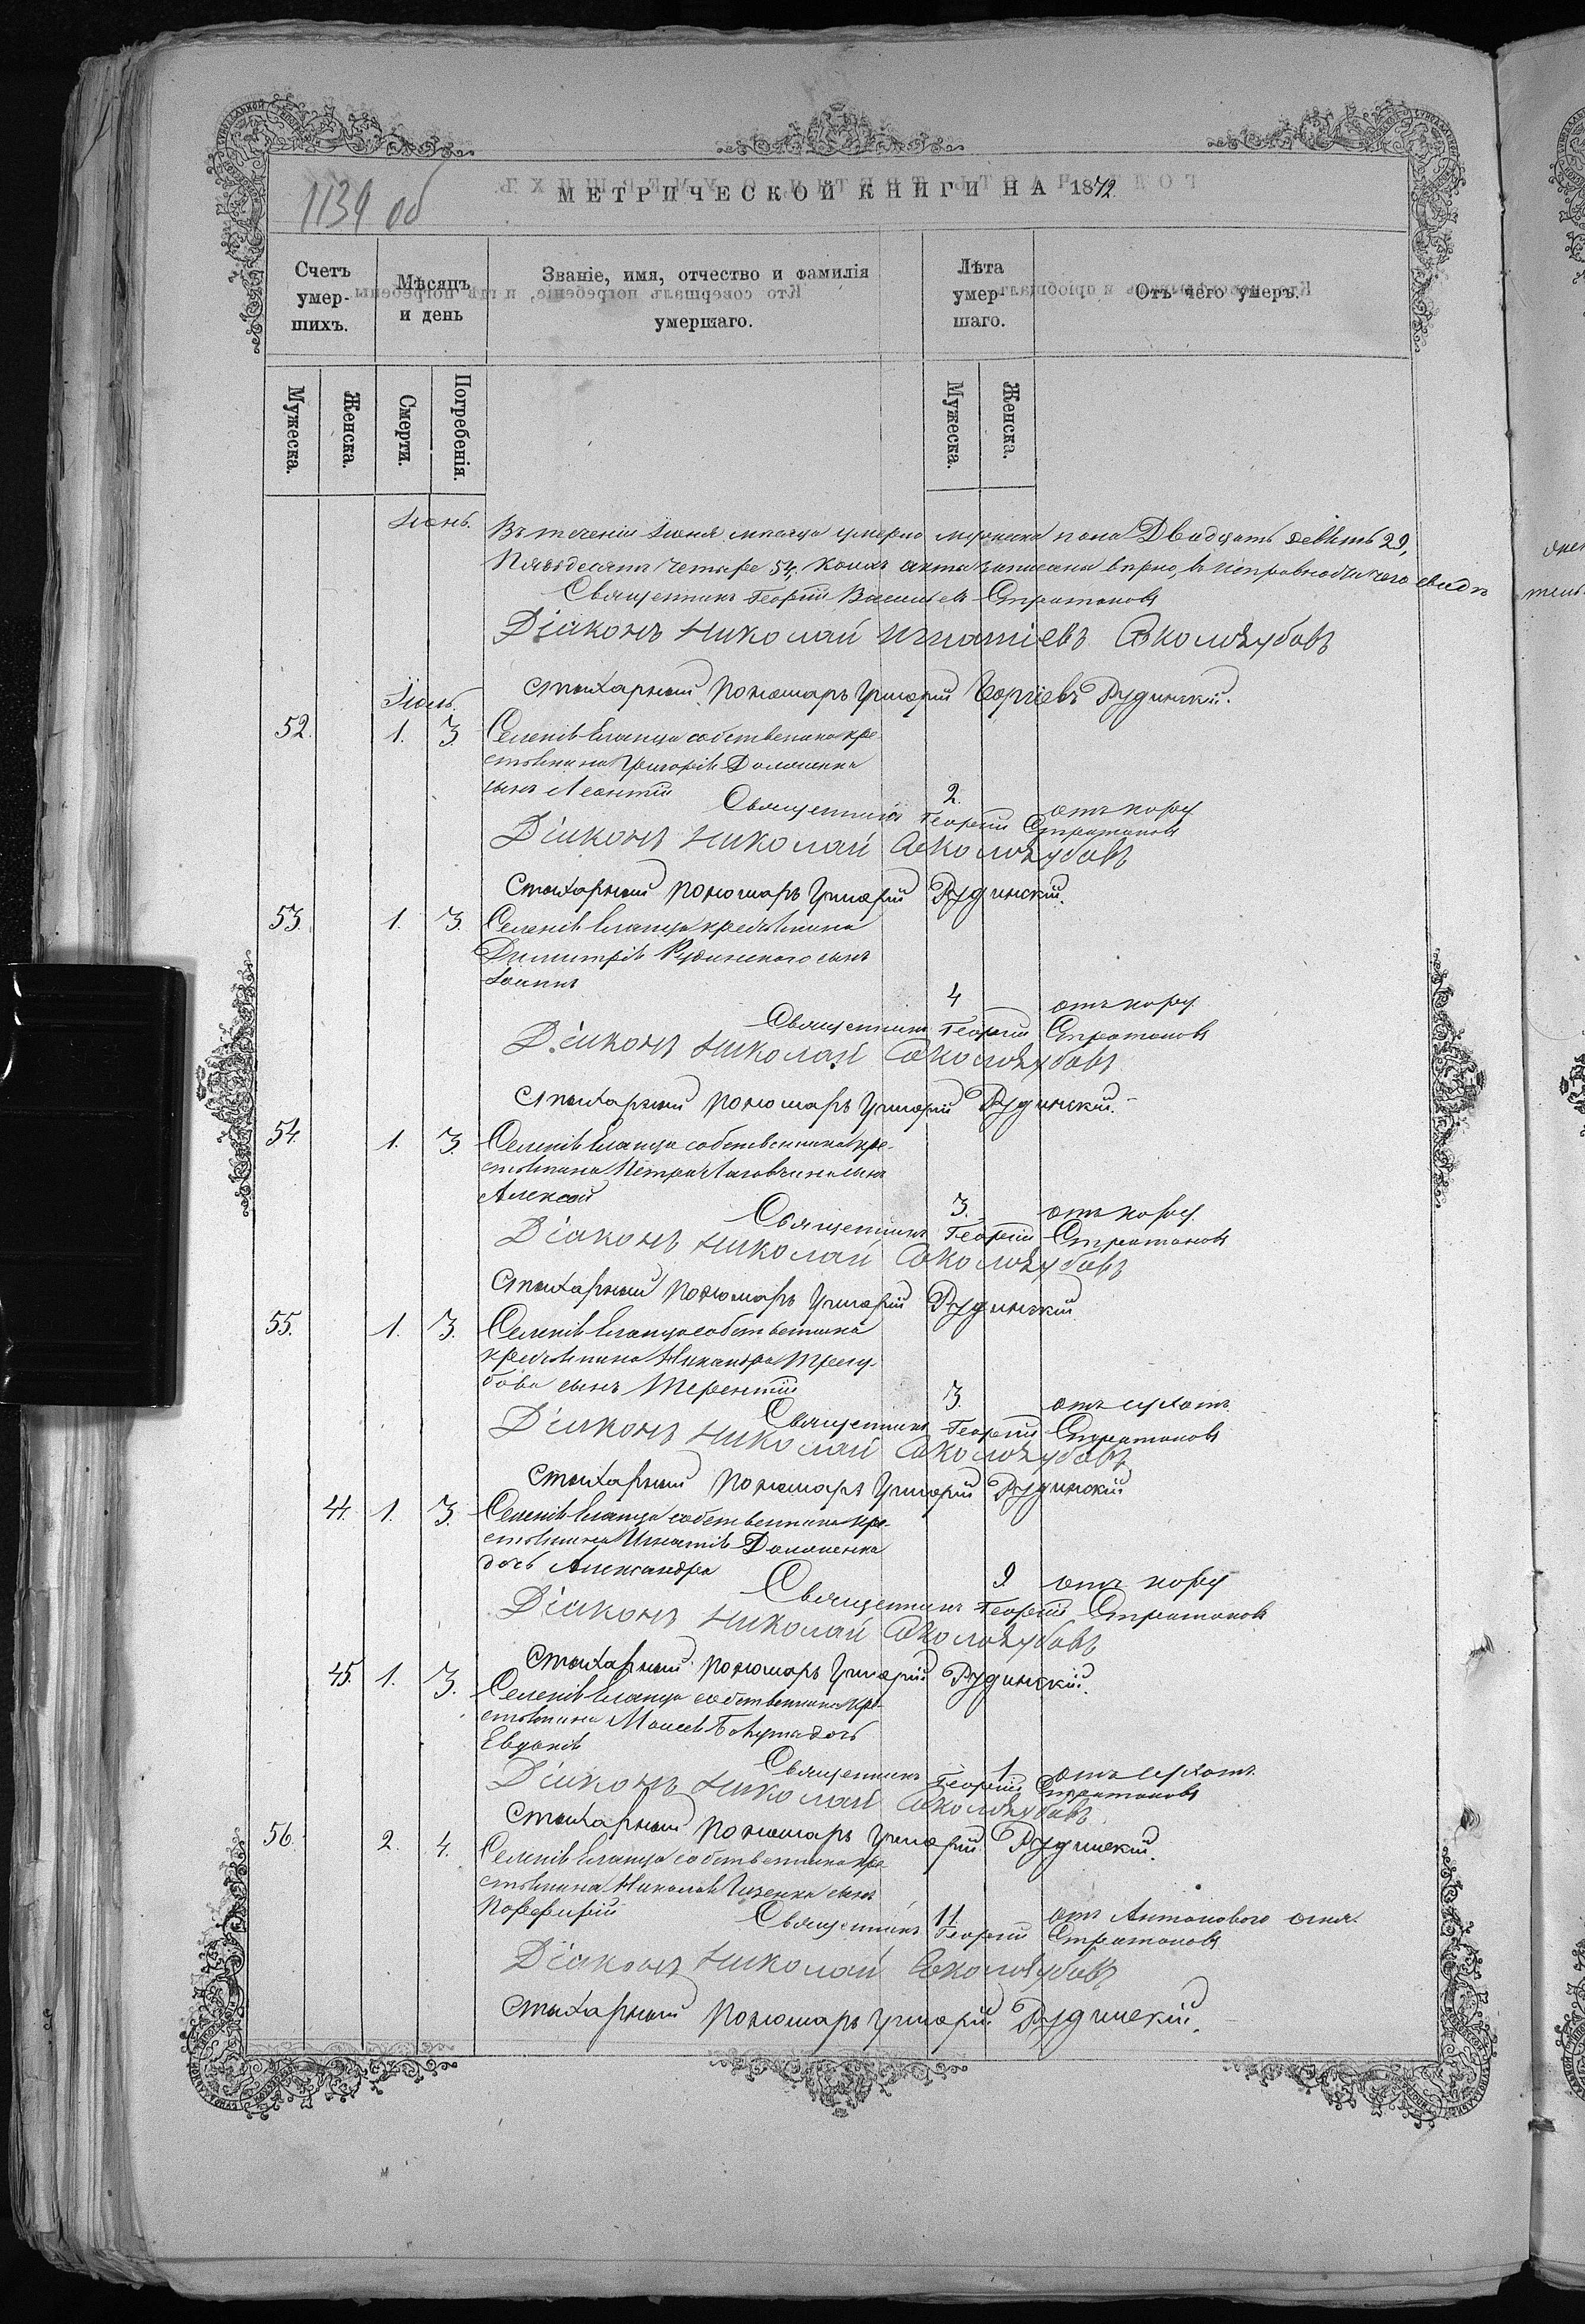 1134 об
МЕТРИЧЕСКОЙ КНИГИ НА 1872
Счетъ умер-шихъ.
Мѣсяцъ и день
Званіе, имя, отчество и фамилія умершаго.
Лѣта умер-шаго.
Отъ чего умеръ.
Мужеска.
Женска.
Смерти.
Погребенія.
Мужеска.
Женска.
Іюнь.
Въ теченіи Іюня мѣсяца умерло мужеска пола Двадцать девять 29,
Пятьдесятъ четыре 54, коихъ акта записаны вѣрно, въ
Священникъ Георгій Васильевъ Стратоновъ
Діаконъ Николай Игнатіевъ
Стихарный Пономарь Григорій Георгіевъ Рудинскій.
Іюль.
52. 1. 3. Селенія Еланца собственника кре-
стьянина Григорія Доломенка
сынъ Леонтій 2. отъ кору
Священникъ Георгій Стратоновъ
Діаконъ Николай
Стихарный Пономарь Григорій Рудинскій.
53. 1. 3. Селенія Еланца крестьянина
Димитрія Рудинского сынъ
Іоаннъ 4 отъ кору.
Священникъ Георгій Стратоновъ
Діаконъ Николай
Стихарный Пономарь Григорій Рудинскій.
54. 1. 3. Селенія Еланца собственника кре-
стьянина Петра сынъ
Алексей 3. отъ кору.
Священникъ Георгій Стратоновъ
Діаконъ Николай
Стихарный Пономарь Григорій Рудинскій
55. 1. 3. Селенія Еланца собственника
крестьянина Никанора Трегу-
бова сынъ Терентій 3. отъ сухотъ.
Священникъ Георгій Стратоновъ
Діаконъ Николай
Стихарный Пономарь Григорій Рудинскій
44. 1. 3. Селенія Еланца собственника кре-
стьянина Игнатія Доломенка
дочь Александра 9. отъ кору
Священникъ Георгій Стратоновъ
Діаконъ Николай
Стихарный Пономарь Григорій Рудинскій.
45. 1. 3. Селенія Еланца собственника кре-
стьянина Моисея дочь
Евдокія 1 отъ сухотъ.
Священникъ Георгій Стратоновъ
Діаконъ Николай
Стихарный Пономарь Григорій Рудинскій.
56. 2. 4. Селенія Еланца собственника кре-
стьянина Николая сынъ
Порфирій 11. отъ Антонового огня.
Священникъ Георгій Стратоновъ
Діаконъ Николай
Стихарный Пономарь Григорій Рудинскій.